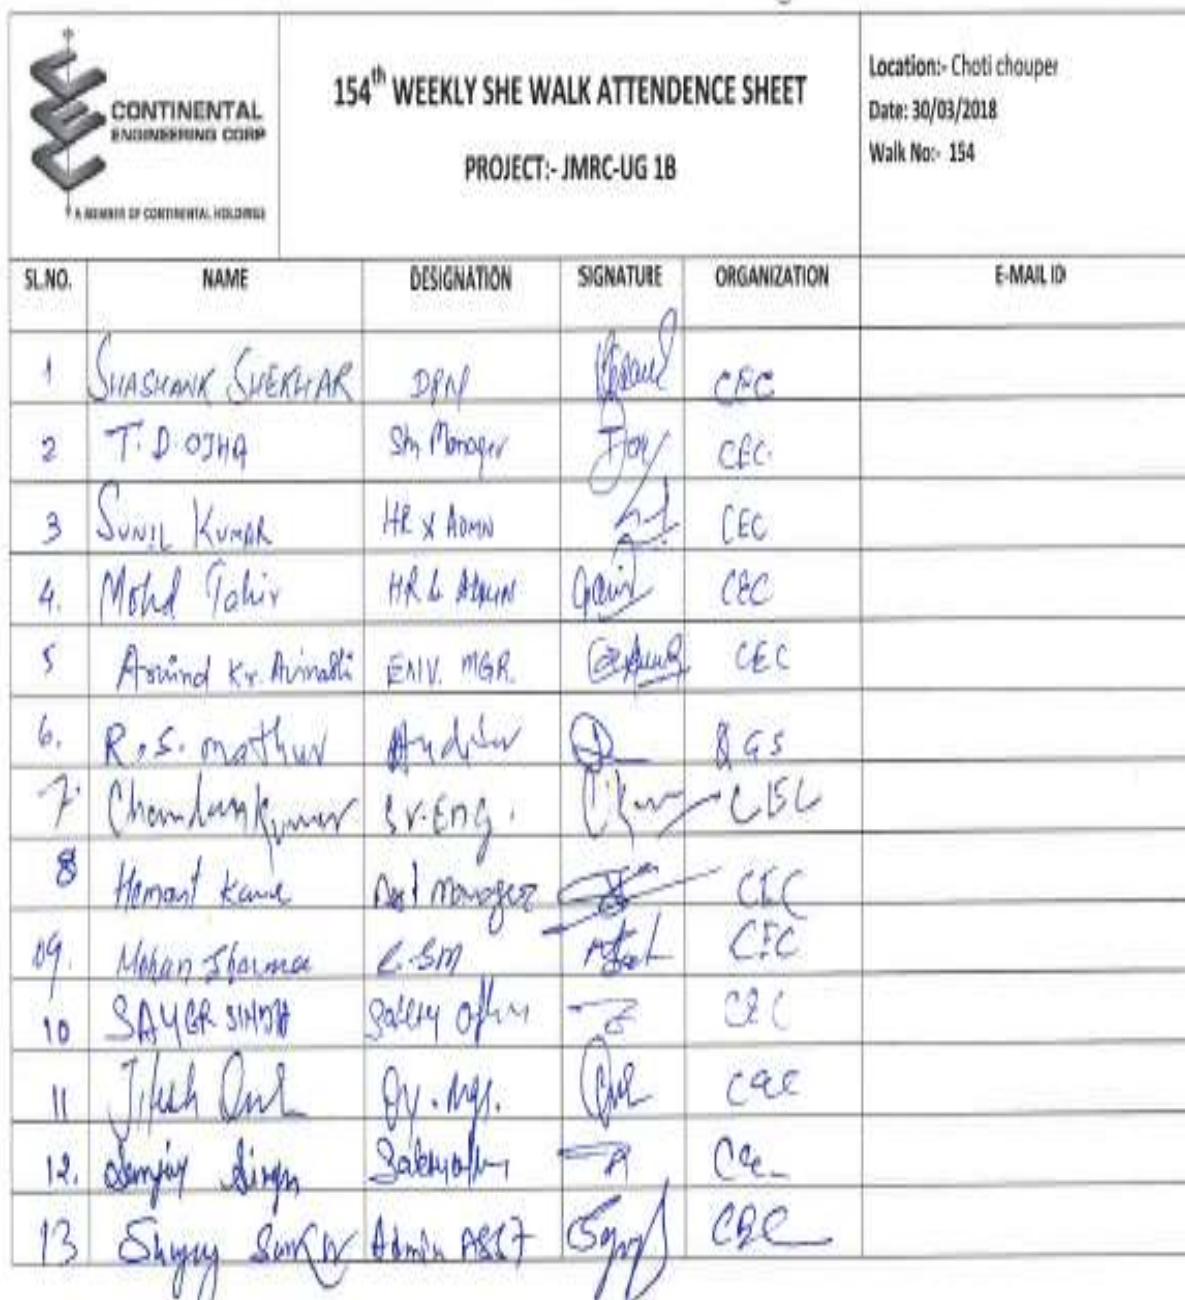 CONTINENTAL
ENGINEERING CORP
A MEMBER OF CONTINENTAL HOLDINGS
154th WEEKLY SHE WALK ATTENDENCE SHEET
PROJECT:- JMRC-UG 1B
Location:- Choti chouper
Date: 30/03/2018
Walk No:- 154
SL.NO. NAME DESIGNATION SIGNATURE ORGANIZATION E-MAIL ID
1 SHASHANK SHEKHAR DPM CEC
2 T.D.OJHA Stn Manager CEC.
3 SUNIL KUMAR HR & ADMN CEC
4. Mohd Tahir HR & ADMIN CEC
5 Arvind Kr. ENV. MGR. CEC
6. R.S. mathur Auditor QGS
7. Chandan Kumar Sr. Eng. CEC
8 Hemant Manager CEC
09. Mohan Sharma CEC
10 SINGH Safety CEC
11 Jitesh Dy. Mgr. CEC
12. Sanjay Singh CEC
13 Admin ASST CEC